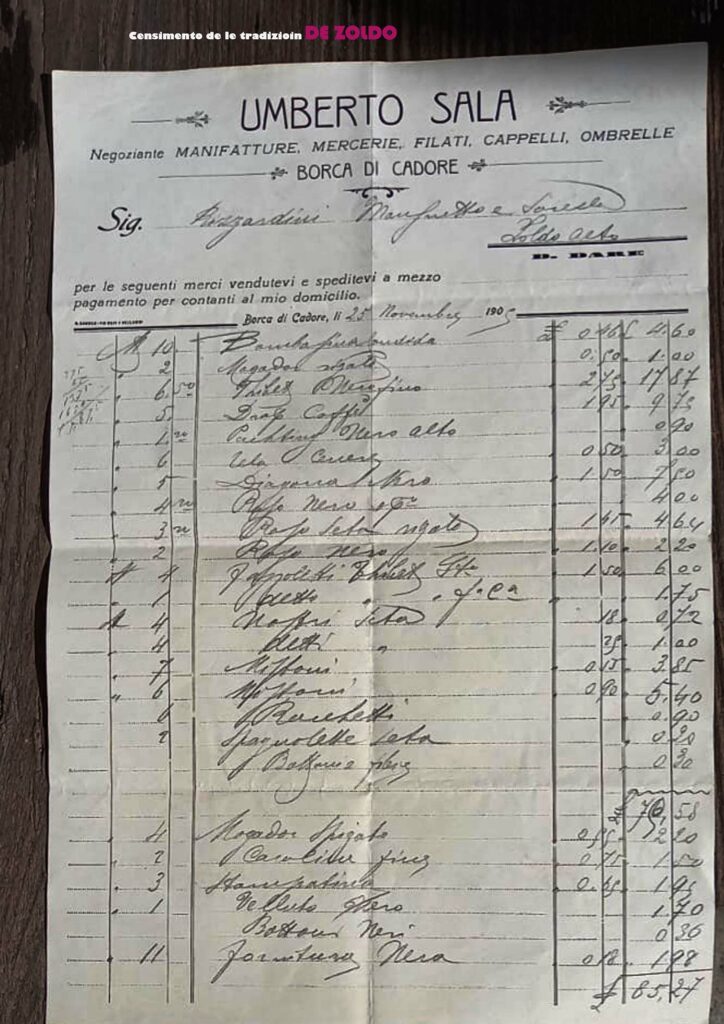 Censimento de le tradizioin DE ZOLDO
UMBERTO SALA
Negoziante MANIFATTURE, MERCERIE, FILATI, CAPPELLI, OMBRELLE
BORCA DI CADORE
Sig. Margherita e Sorelle
Zoldo Alto
D. DARE
per le seguenti merci vendutevi e speditevi a mezzo
pagamento per contanti al mio domicilio.
Borca di Cadore, li 25 Novembre 190
M 10 £ 0.46 £ 4.60
2 Mogador rigato 0.50 1.00
6.50 Thibet Nero fino 2.75 17.87
5 Drap Caffè 1.95 9.75
1 Nero alto 0.90
6 Tela Cenere 0.50 3.00
5 Diagonal Nero 1.50 7.50
4 Raso Nero 4.00
3 Raso Seta rigato 1.45 4.64
2 Raso nero 1.10 2.20
N 4 Fazzoletti Thibet 1.50 6.00
1 detto 1.75
M 4 Nastri Seta 18 0.72
4 detti " 25 1.00
7 0.55 3.85
6 0.90 5.40
6 Rocchetti 0.90
2 Spagnolette Seta 0.20
0.30
58
4 Mogador Spigato 0.55 2.20
2 Caroline fine 0.75 1.50
3 0.65 1.95
1 Velluto Nero 1.70
Bottoni Neri 0.36
11 fornitura Nera 0.18 1.98
£ 85,27